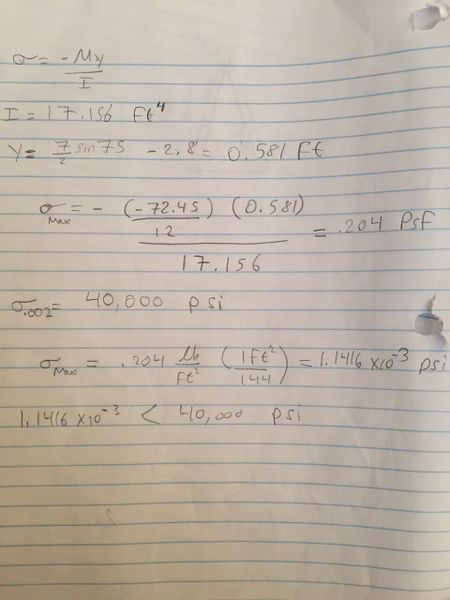 σ = -My/I
I = 17.156 Ft⁴
Y = 7/2 sin75 - 2.8 = 0.581 Ft
σMax = - (-72.45/12) (0.581) / 17.156 = .204 PsF
σ.002 = 40,000 psi
σMax = .204 lb/Ft² (1Ft²/144) = 1.1416 x10⁻³ psi
1.1416 x10⁻³ < 40,000 psi